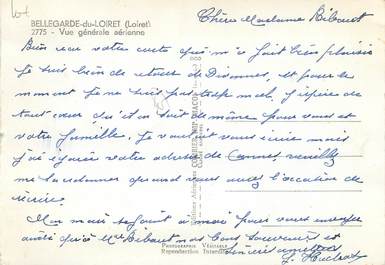 BELLEGARDE-du-LOIRET (Loiret)
2775 - Vue générale aérienne
Chère Madame Bibaut
Bien reçu votre carte qui m'a fait bien plaisir
je suis bien de retour de et pour le
moment je ne suis pas trop mal, j'espère de
tout cœur qu'il en soit de même pour vous et
votre famille. Je voulais vous écrire mais
j'ai égaré votre adresse de Cannes, veuillez
me la redonner quand vous aurez l'occasion de
écrire.
Mon mari se joint à moi pour vous envoyer
ainsi qu'à Mme Bibaut nos bons souvenirs et
sincères amitiés
PHOTOGRAPHIE VÉRITABLE
Reproduction Interdite